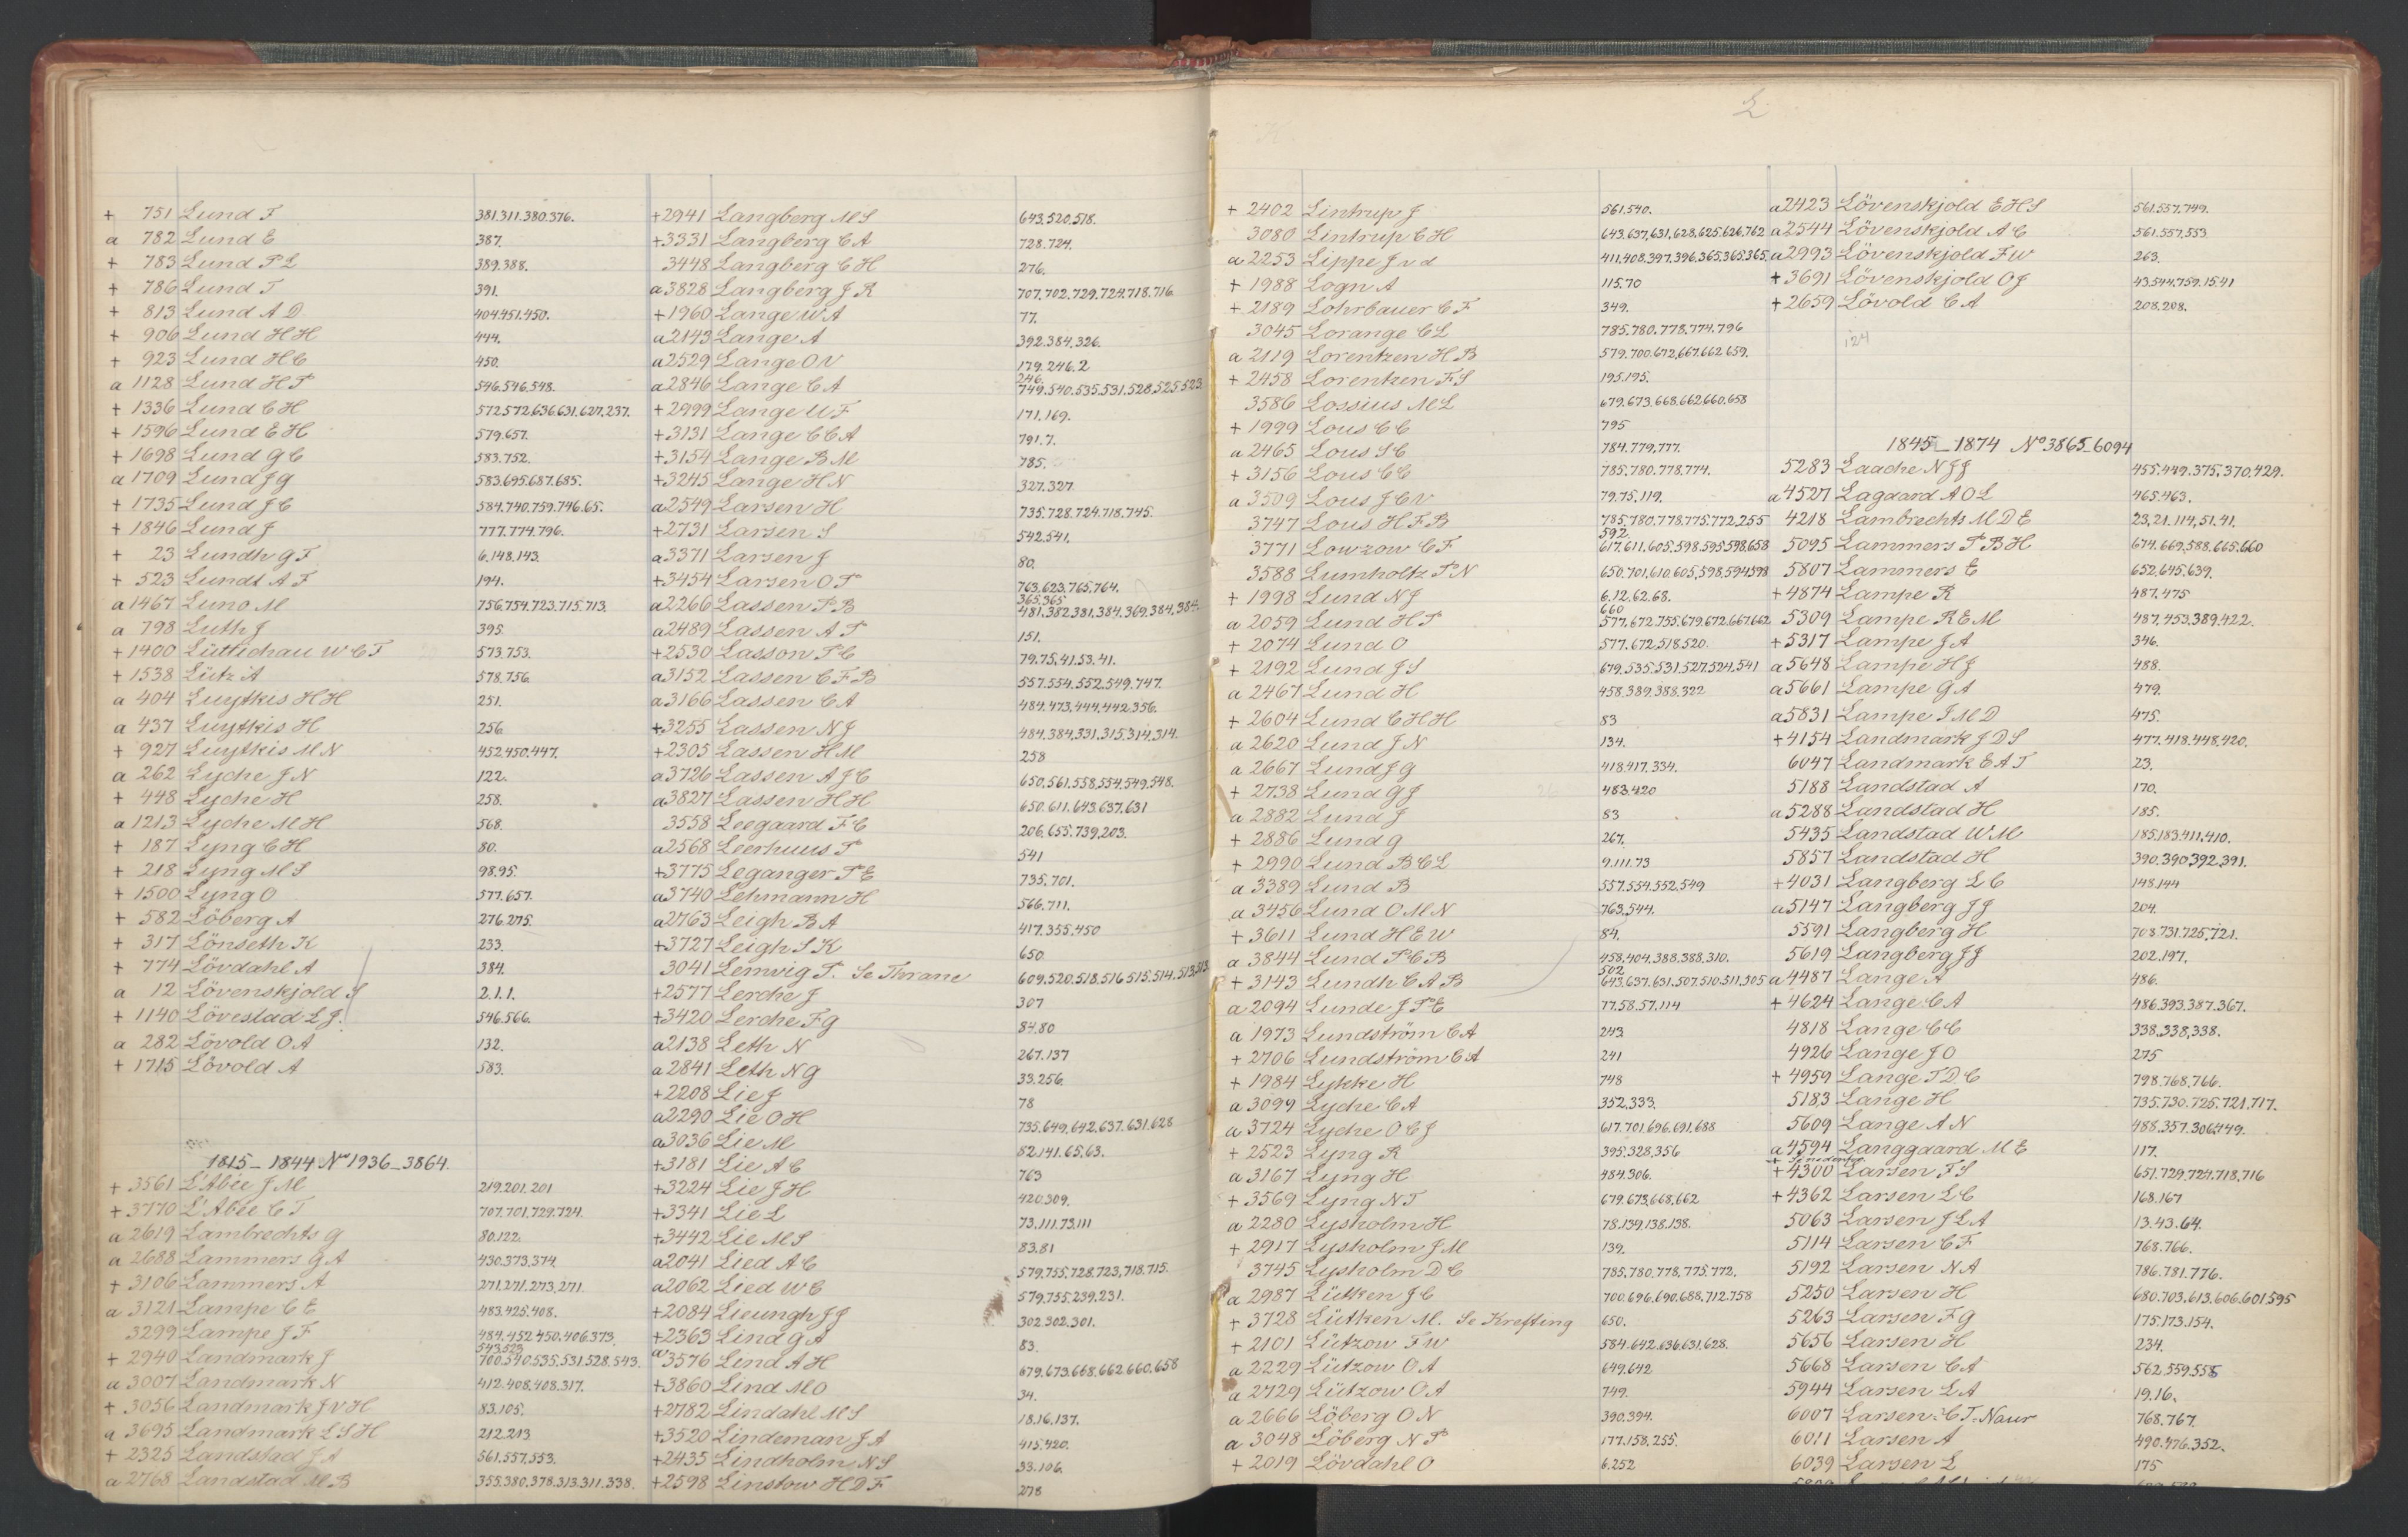 L
+ 751 Lund F 381.311.380.376.
a 782 Lund E 387.
+ 783 Lund P L 389.388.
+ 786 Lund T 391.
+ 813 Lund A D 404.451.450.
+ 906 Lund H H 444.
+ 923 Lund H C 450.
a 1128 Lund H P 546.546.548.
+ 1336 Lund C H 572.572.636.631.627.237.
+ 1596 Lund E H 579.657.
+ 1698 Lund G C 583.752.
a 1709 Lund J G 583.695.687.685.
+ 1735 Lund J C 584.740.759.746.65.
+ 1846 Lund J 777.774.796.
+ 23 Lundh G F 6.148.143.
+ 523 Lundt A F 194.
a 1467 Luno M 756.754.723.715.713.
a 798 Luth J 395.
+ 1400 Lüttichau W C T 573.753.
+ 1538 Lütz A 578.756.
a 404 Luytkis H H 251.
a 437 Luytkis H 256.
+ 927 Luytkis M N 452.450.447.
a 262 Lyche J N 122.
+ 448 Lyche H 258.
a 1213 Lyche M H 568.
+ 187 Lyng C H 80.
+ 218 Lyng M S 98.95.
+ 1500 Lyng O 577.657.
+ 582 Löberg A 276.275.
+ 317 Lönseth K 233.
+ 774 Lövdahl A 384.
a 12 Lövenskjold S 2.1.1.
+ 1140 Lövestad L J. 546.566.
a 282 Lövold O A 132.
+ 1715 Lövold A 583.
1815_1844 No 1936_3864.
+ 3561 L'Abée J M 219.201.201
+ 3770 L'Abée C T 707.701.729.724.
a 2619 Lambrechts G 80.122.
a 2688 Lammers G A 430.373.374.
+ 3106 Lammers A 271.271.273.271.
a 3121 Lampe C E 483.425.408.
3299 Lampe J F 484.452.450.406.373.
543.523
+ 2940 Landmark J 700.540.535.531.528.543.
a 3007 Landmark N 412.408.408.317.
+ 3056 Landmark J V H 83.105.
a 3695 Landmark L S H 212.213
+ 2325 Landstad J A 561.557.553.
a 2768 Landstad M B 355.380.378.313.311.338.
+ 2941 Langberg M S 643.520.518.
+ 3331 Langberg C A 728.724.
3448 Langberg C H 276.
a 3828 Langberg J R 707.702.729.724.718.716.
+ 1960 Lange W A 77.
a 2143 Lange A 392.384.326.
a 2529 Lange O V 179.246.2
246.
a 2846 Lange C A 749.540.535.531.528.525.523.
+ 2999 Lange U F 171.169.
+ 3131 Lange C C A 791.7.
+ 3154 Lange B M 785.
+ 3245 Lange H N 327.327
a 2549 Larsen H 735.728.724.718.745.
+ 2731 Larsen S 542.541.
a 3371 Larsen J 80.
+ 3454 Larsen O P 763.623.765.764.
365.365
a 2266 Lassen P B 481.382.381.384.369.384.384.
a 2489 Lassen A P 151.
+ 2530 Lasson P C 79.75.41.53.41.
a 3152 Lassen C F B 557.554.552.549.747.
a 3166 Lassen C A 484.473.444.442.356.
+ 3255 Lassen N J 484.384.331.315.314.314.
+ 2305 Lassen H M 258
a 3726 Lassen A J C 650.561.558.554.549.548.
a 3827 Lassen H H 650.611.643.637.631
3558 Leegaard F C 206.655.739.203.
a 2568 Leerhuus P 541
+ 3775 Leganger P E 735.701.
a 3740 Lehmann H 566.711.
a 2763 Leigh B A 417.355.450
+ 3727 Leigh S K 650
3041 Lemvig P. Se Thrane 609.520.518.516.515.514.513.513
+ 2577 Lerche J 307
+ 3420 Lerche F G 84.80
a 2138 Leth N 267.137
a 2841 Leth N G 33.256.
+ 2208 Lie J 78
a 2290 Lie O H 735.649.642.637.631.628
a 3036 Lie M 82.141.65.63.
+ 3181 Lie A C 763
+ 3224 Lie J H 420.309.
+ 3341 Lie L 73.111.73.111
+ 3442 Lie M S 83.81
a 2041 Lied A C 579.755.728.723.718.715.
a 2062 Lied W C 579.755.239.231.
+ 2084 Lieungh J J 302.302.301.
+ 2363 Lind G A 83.
a 3576 Lind A H 679.673.668.662.660.658
+ 3860 Lind M O 34.
+ 2782 Lindahl M S 18.16.137.
+ 3520 Lindeman J A 415.420.
+ 2435 Lindholm N S 33.106.
+ 2598 Linstow H D F 278
+ 2402 Lintrup J 561.540.
3080 Lintrup C H 643.637.631.628.625.626.762
a 2253 Lippe J v d 411.408.397.396.365.365.365.
+ 1988 Logn A 115.70
+ 2189 Lohrbauer C F 349.
3045 Lorange C L 785.780.778.774.796
a 2119 Lorentzen H B 579.700.672.667.662.659.
+ 2458 Lorentzen F S 195.195.
3586 Lossius M L 679.673.668.662.660.658
+ 1999 Lous C C 795
a 2465 Lous S C 784.779.777.
+ 3156 Lous C C 785.780.778.774.
a 3509 Lous J C V 79.75.119.
3747 Lous H F B 785.780.778.775.772.255
592.
3771 Lowzow C F 617.611.605.598.595.598.658
3588 Lumholtz P N 650.701.610.605.598.594.598
+ 1998 Lund N J 6.12.62.68.
660
a 2059 Lund H P 577.672.755.679.672.667.662
+ 2074 Lund O 577.672.518.520.
+ 2192 Lund J S 679.535.531.527.524.541
a 2467 Lund H 458.389.388.322
+ 2604 Lund C H H 83
a 2620 Lund J N 134.
a 2667 Lund J G 418.417.334.
+ 2738 Lund G J 483.420
a 2882 Lund J 83
+ 2886 Lund G 267.
+ 2990 Lund B C L 9.111.73
a 3389 Lund B 557.554.552.549
a 3456 Lund O M N 763.544.
+ 3611 Lund H E W 84.
a 3844 Lund P C B 458.404.388.388.310.
502
+ 3143 Lundh C A B 643.637.631.507.510.511.305
a 2094 Lunde J P E 77.58.57.114
a 1973 Lundström C A 243
+ 2706 Lundström C A 241
+ 1984 Lykke H 748
a 3099 Lyche C A 352.333.
a 3724 Lyche O C J 617.701.696.691.688
+ 2523 Lyng R 395.328.356
a 3167 Lyng H 484.306.
+ 3569 Lyng N T 679.673.668.662
a 2280 Lysholm H 78.139.138.138.
+ 2917 Lysholm J M 139.
3745 Lysholm D C 785.780.778.775.772.
a 2987 Lütken J C 700.696.690.688.712.758
+ 3728 Lütken M. Se Krefting 650.
+ 2101 Lützow F W 584.642.636.631.628.
a 2229 Lützow O A 649.642
a 2729 Lützow O A 749.
a 2666 Löberg O N 390.394.
a 3048 Löberg N P 177.158.255.
+ 2019 Lövdahl O 6.252
a 2423 Lövenskjold E H S 561.557.749.
a 2544 Lövenskjold A C 561.557.553
a 2993 Lövenskjold F W 263.
+ 3691 Lövenskjold O J 43.544.759.15.41
+ 2659 Lövold C A 208.208.
124
1845_1874 No 3865_6094
5283 Laache N J J 455.449.375.370.429.
a 4527 Lagaard A O L 465.463.
4218 Lambrechts M D E 23.21.114.51.41.
5095 Lammers P B H 674.669.588.665.660
5807 Lammers E 652.645.639.
+ 4874 Lampe R 487.475
5309 Lampe R E M 487.453.389.422.
+ 5317 Lampe J A 346.
a 5648 Lampe H J 488.
a 5661 Lampe G A 479.
a 5831 Lampe J M D 475.
+ 4154 Landmark J D S 477.418.448.420.
6047 Landmark E A T 23.
5188 Landstad A 170.
a 5288 Landstad H 185.
5435 Landstad W M 185.183.411.410.
5857 Landstad H 390.390.392.391.
+ 4031 Langberg L C 148.144
a 5147 Langberg J J 204.
5591 Langberg H 708.731.725.721.
5619 Langberg J J 202.197.
a 4487 Lange A 486.
+ 4624 Lange C A 486.393.387.367.
4818 Lange C C 338.338.338.
4926 Lange J O 275
+ 4959 Lange T D C 798.768.766.
5183 Lange H 735.730.725.721.717.
5609 Lange A N 488.357.306.449.
a 4594 Langgaard M E 117.
+ 4300 Larsen F S 651.729.724.718.716
+ 4362 Larsen L C 168.167
5063 Larsen J L A 13.43.64.
5114 Larsen C F 768.766.
5192 Larsen N A 786.781.776.
5250 Larsen H 680.703.613.606.601.595
5263 Larsen F G 175.173.154.
5656 Larsen H 234.
5668 Larsen C A 562.559.555
5944 Larsen L A 19.16.
6007 Larsen C T-Naur 768.767.
6011 Larsen A 490.476.352.
6039 Larsen L 175